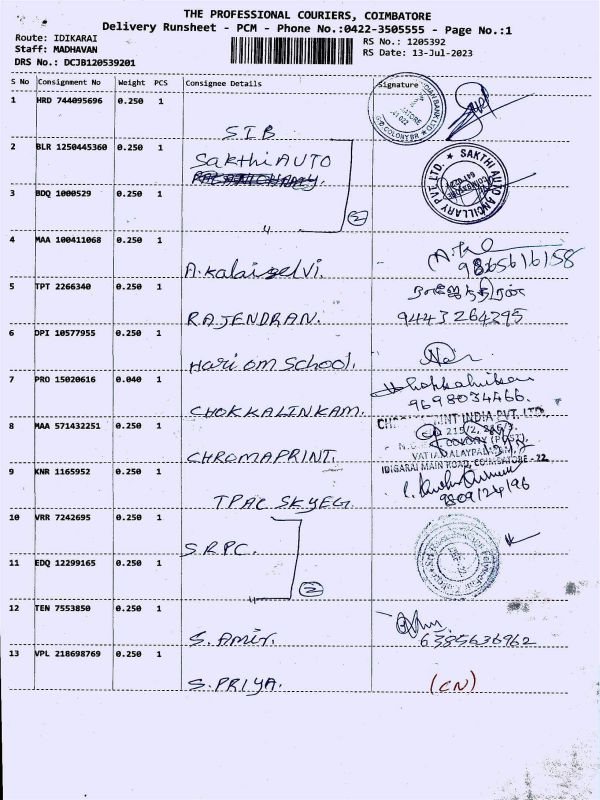 THE PROFESSIONAL COURIERS, COIMBATORE
Delivery Runsheet - PCM - Phone No.:0422-3505555 - Page No.:1
Route: IDIKARAI
Staff: MADHAVAN
DRS No.: DCJB120539201
RS No.: 1205392
RS Date: 13-Jul-2023
S No Consignment No Weight PCS Consignee Details Signature
1 HRD 744095696 0.250 1
S.I.B
2 BLR 1250445360 0.250 1
Sakthi AUTO
SAKTHI AUTO ANCILLARY PVT. LTD.
3 BDQ 1000529 0.250 1
2
4 MAA 100411068 0.250 1
A.Kalaiselvi. 9865616158
5 TPT 2266340 0.250 1
RAJENDRAN. 9443264295
6 DPI 10577955 0.250 1
Hari om School.
7 PRO 15020616 0.040 1
CHOKKALINKAM. 9698034466.
8 MAA 571432251 0.250 1
CHROMAPRINT.
INDIA PVT. LTD.
IDIGARAI MAIN ROAD, COIMBATORE - 22
9 KNR 1165952 0.250 1
10 VRR 7242695 0.250 1
S.R.P.C.
11 EDQ 12299165 0.250 1
2
12 TEN 7553850 0.250 1
S. Amir. 6385636962
13 VPL 218698769 0.250 1
S.PRIYA. (CN)